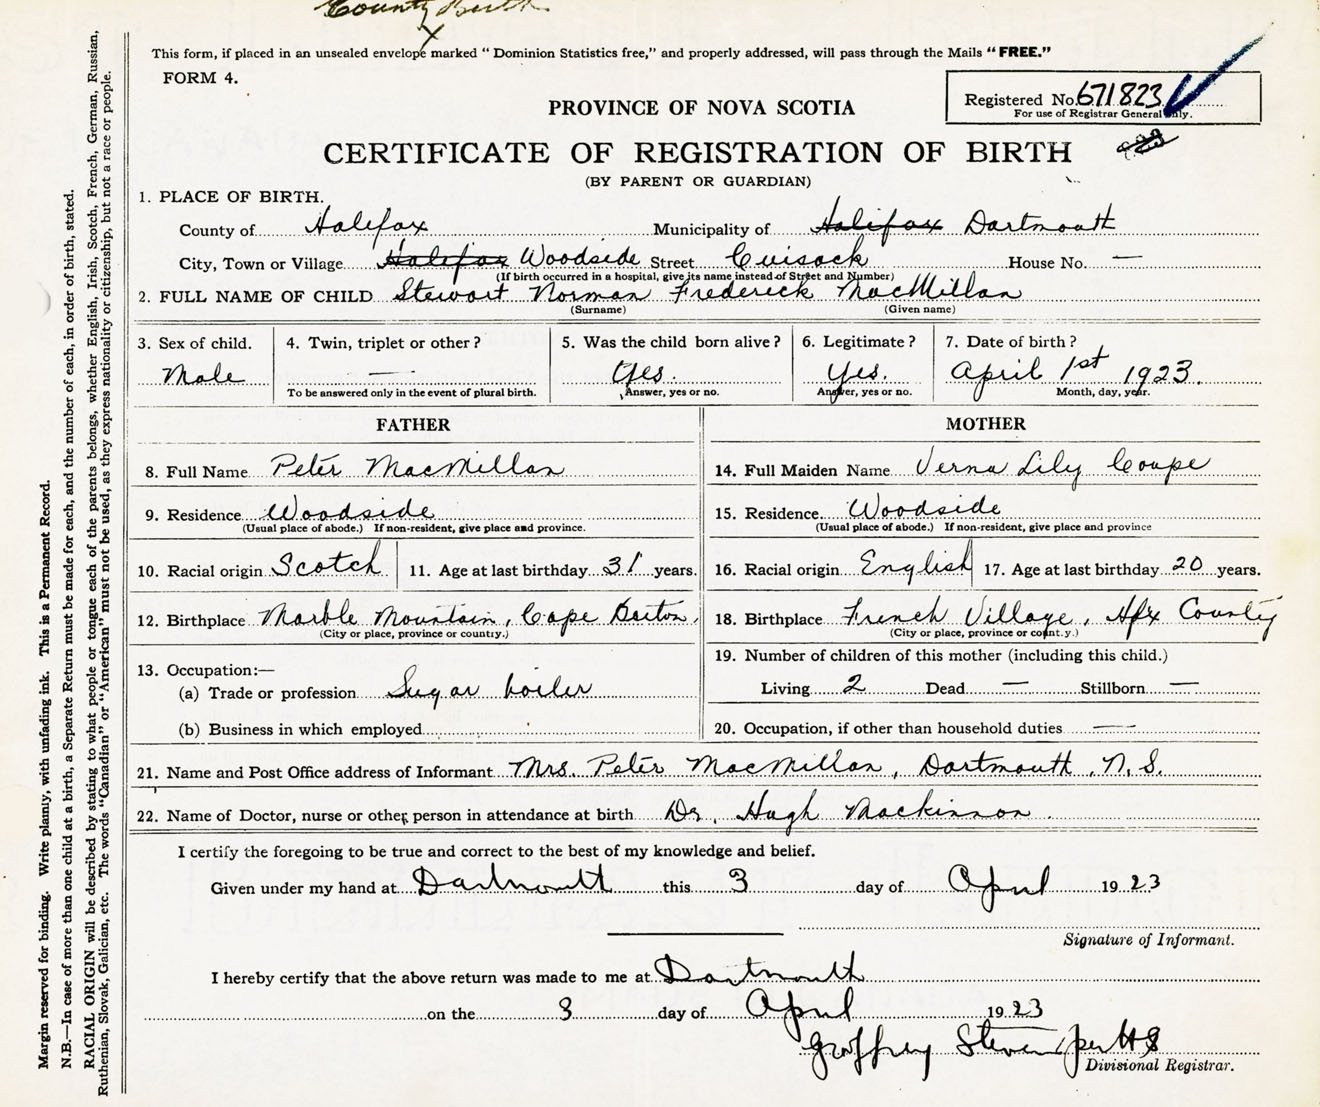 County Birth
X
This form, if placed in an unsealed envelope marked "Dominion Statistics free," and properly addressed, will pass through the Mails "FREE."
FORM 4.
Registered No. 671823
For use of Registrar General only.
PROVINCE OF NOVA SCOTIA
CERTIFICATE OF REGISTRATION OF BIRTH
(BY PARENT OR GUARDIAN)
1. PLACE OF BIRTH.
County of Halifax Municipality of Halifax Dartmouth
City, Town or Village Halifax Woodside Street Cuisack House No. —
(If birth occurred in a hospital, give its name instead of Street and Number)
2. FULL NAME OF CHILD Stewart Norman Frederick MacMillan
(Surname) (Given name)
3. Sex of child. 4. Twin, triplet or other? 5. Was the child born alive? 6. Legitimate? 7. Date of birth?
Male — Yes. Yes. April 1st 1923.
To be answered only in the event of plural birth. Answer, yes or no. Answer, yes or no. Month, day, year.
FATHER MOTHER
8. Full Name Peter MacMillan 14. Full Maiden Name Verna Lily Coupe
9. Residence Woodside 15. Residence Woodside
(Usual place of abode.) If non-resident, give place and province. (Usual place of abode.) If non-resident, give place and province
10. Racial origin Scotch 11. Age at last birthday 31 years. 16. Racial origin English 17. Age at last birthday 20 years.
12. Birthplace Marble Mountain, Cape Barton, 18. Birthplace French Village, Hfx County
(City or place, province or country.) (City or place, province or country.)
19. Number of children of this mother (including this child.)
13. Occupation:—
(a) Trade or profession Sugar boiler Living 2 Dead — Stillborn —
(b) Business in which employed 20. Occupation, if other than household duties —
21. Name and Post Office address of Informant Mrs. Peter MacMillan, Dartmouth, N.S.
22. Name of Doctor, nurse or other person in attendance at birth Dr. Hugh Mackinnon.
I certify the foregoing to be true and correct to the best of my knowledge and belief.
Given under my hand at Dartmouth this 3 day of April 1923
Signature of Informant.
I hereby certify that the above return was made to me at Dartmouth
on the 3 day of April 1923
Geoffrey Stevens per HS
Divisional Registrar.
Margin reserved for binding. Write plainly, with unfading ink. This is a Permanent Record.
N.B.—In case of more than one child at a birth, a Separate Return must be made for each, and the number of each, in order of birth, stated.
RACIAL ORIGIN will be described by stating to what people or tongue each of the parents belongs, whether English, Irish, Scotch, French, German, Russian,
Ruthenian, Slovak, Galician, etc. The words "Canadian" or "American" must not be used, as they express nationality or citizenship, but not a race or people.